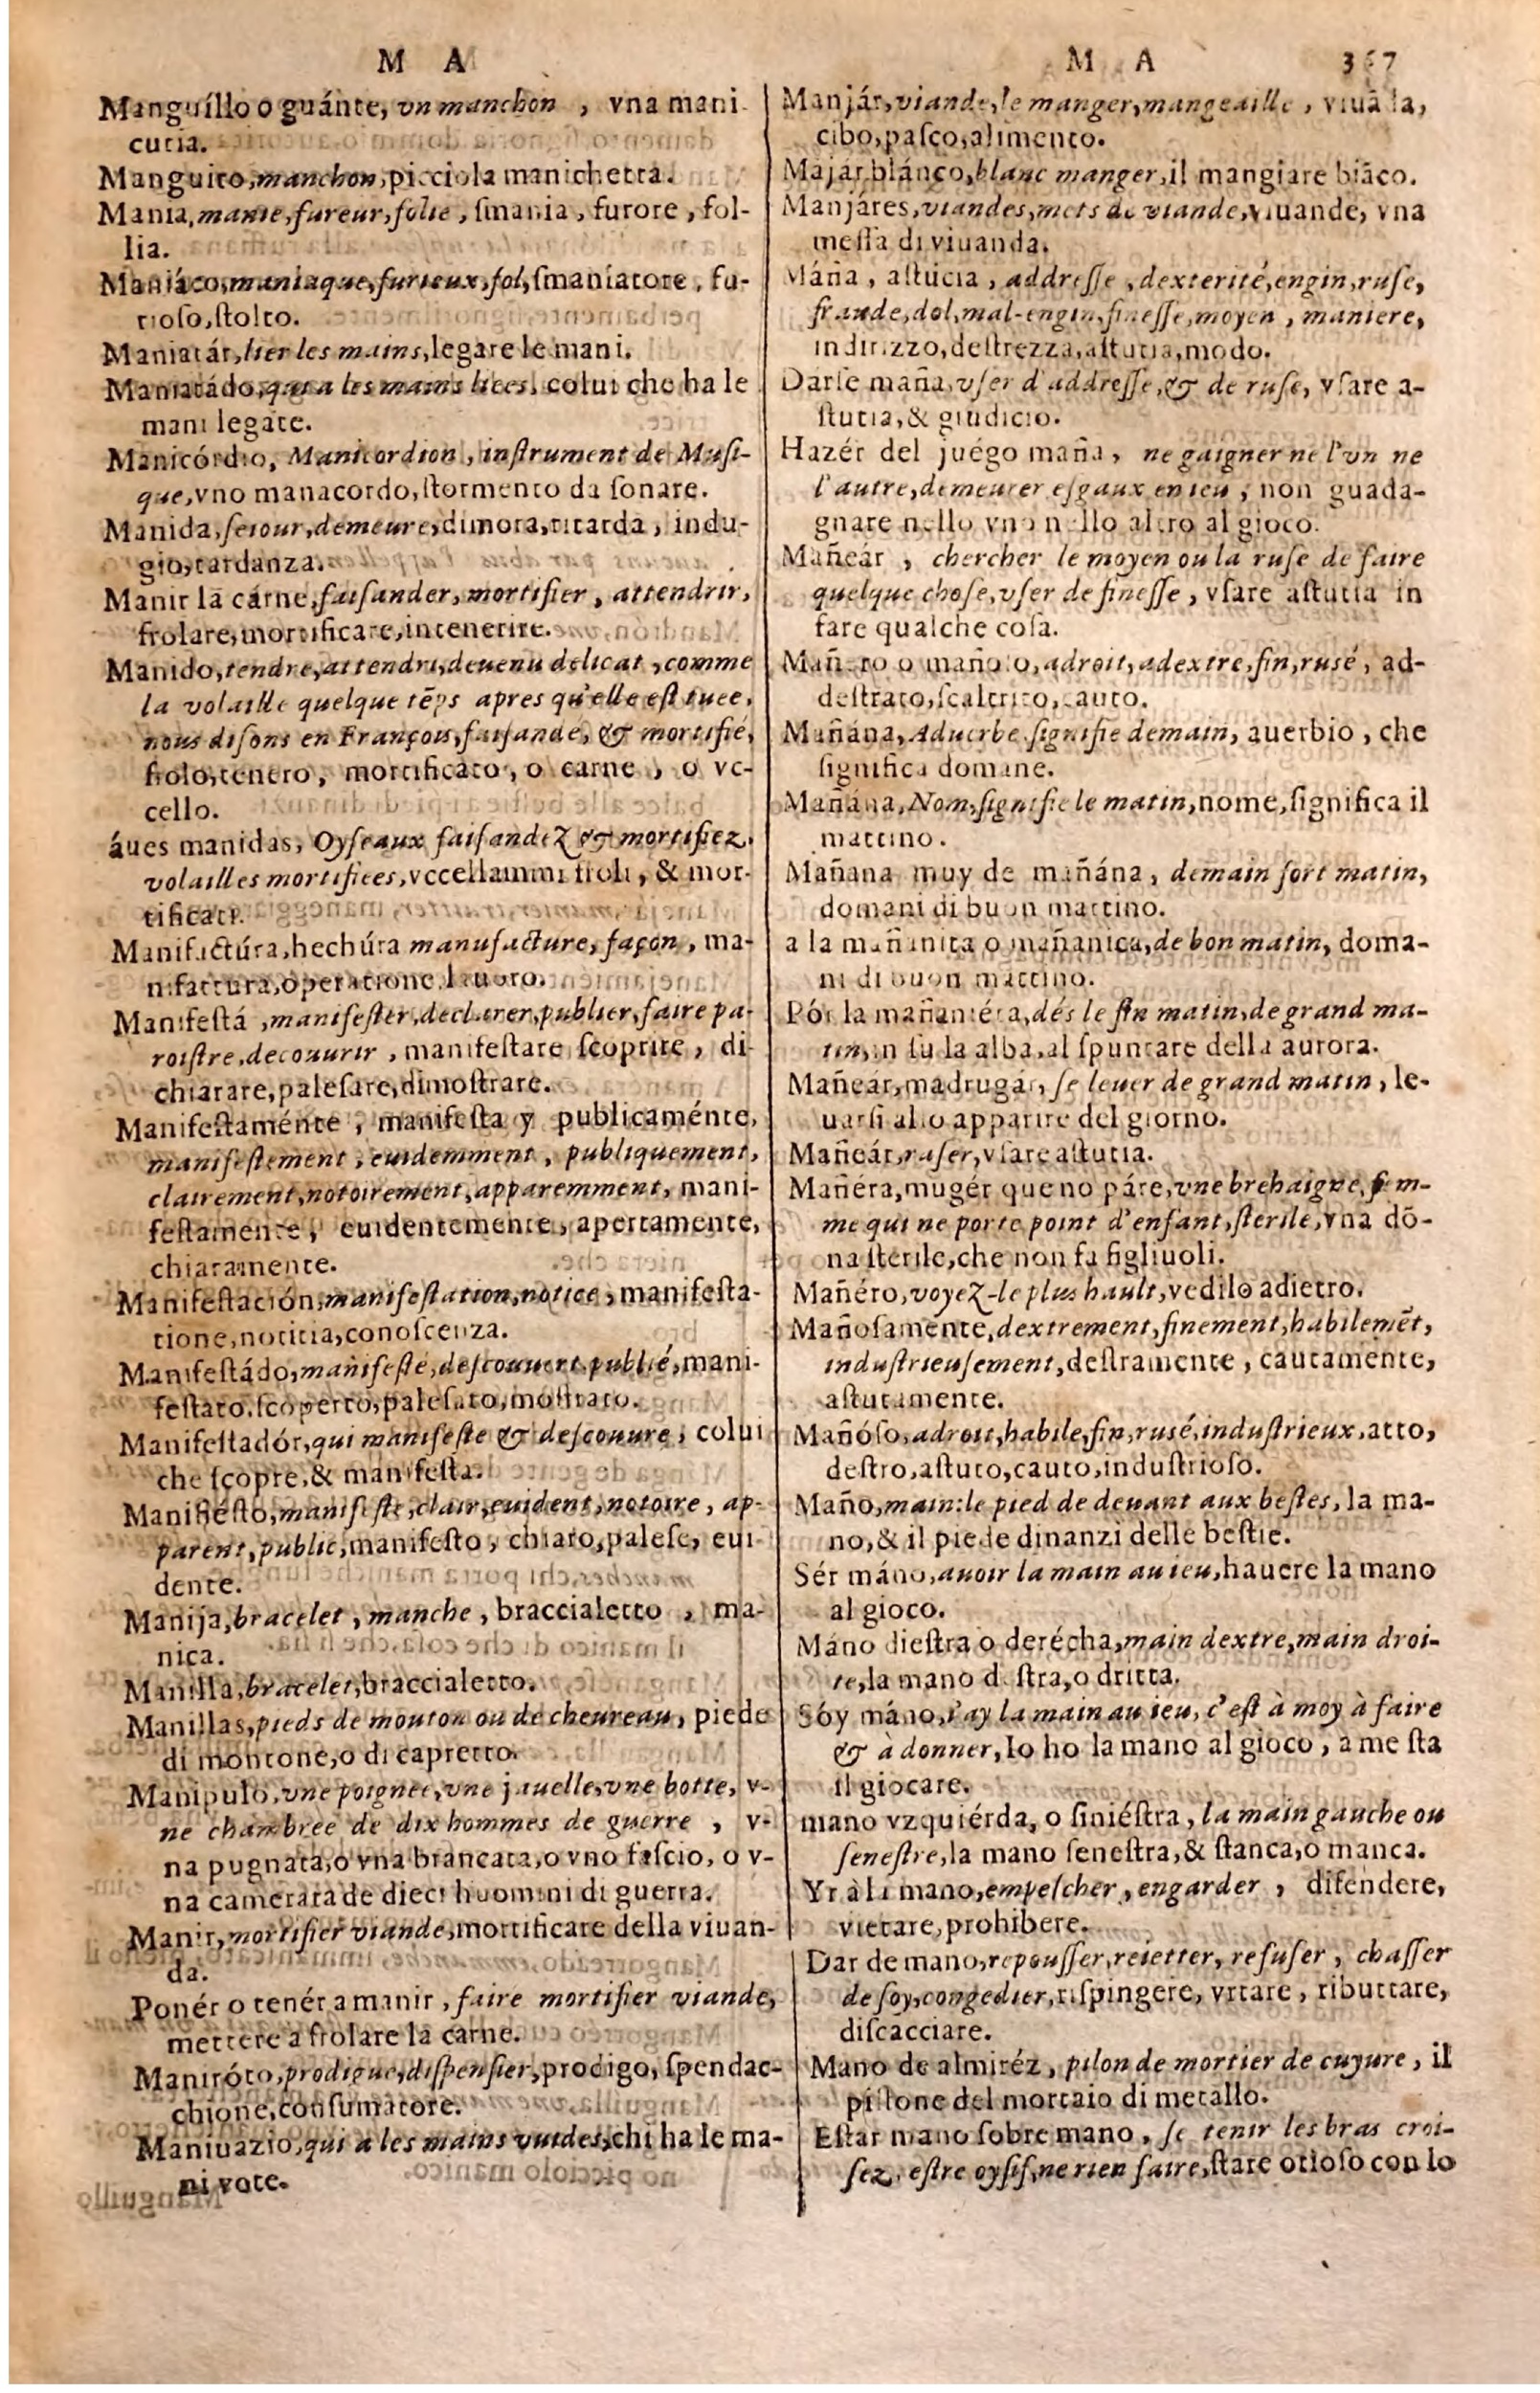 M A
Manguíllo o guánte, vn manchon , vna mani-
curia.
Manguito,manchon,picciola manichetta.
Mania,manie,fureur,folie , ſmania , furore , fol-
lia.
Maniáco,maniaque,furieux,fol,ſmaniatore , fu-
rioſo,ſtolto.
Maniatár,lier les mains,legare le mani.
Maniatádo,qui a les mains liees, colui che ha le
mani legate.
Manicórdio, Manicordion , inſtrument de Muſi-
que,vno manacordo,ſtormento da ſonare.
Manida,ſeiour,demeure,dimora,ritarda , indu-
gio,tardanza.
Manir la cárne,faiſander, mortifier , attendrir,
frolare,mortificare,intenerire.
Manido,tendre,attendri,deuenu delicat ,comme
la volaille quelque tẽps apres qu'elle eſt tuee,
nous diſons en François,faiſandé, & mortifié,
frolo,tenero , mortificato , o carne , o vc-
cello.
áues manidas, Oyſeaux faiſandez & mortifiez,
volailles mortifiees,vccellammi froli , & mor-
tificati.
Manifactúra,hechúra manufacture, façon , ma-
nifattura,operatione,lauoro.
Manifeſtá ,manifeſter,declarer,publier,faire pa-
roiſtre,decouurir , manifeſtare ſcoprire , di-
chiarare,paleſare,dimoſtrare.
Manifeſtaménte , manifeſta y publicaménte,
manifeſtement , euidemment , publiquement,
clairement,notoirement,apparemment, mani-
feſtamente , euidentemente, apertamente,
chiaramente.
Manifeſtación,manifeſtation,notice, manifeſta-
tione,notitia,conoſcenza.
Manifeſtádo,manifeſté,deſcouuert,publié,mani-
feſtato,ſcoperto,paleſato,moſtrato.
Manifeſtadór,qui manifeſte & deſcouure, colui
che ſcopre,& manifeſta.
Manifiéſto,manifeſte,clair,euident,notoire, ap-
parent,public,manifeſto , chiaro,paleſe, eui-
dente.
Manija,bracelet , manche , braccialetto , ma-
nica.
Manilla,bracelet,braccialetto.
Manillas,pieds de mouton ou de cheureau, piede
di montone,o di capretto.
Manipulo,vne poignee,vne jauelle,vne botte, v-
ne chambree de dix hommes de guerre , v-
na pugnata,o vna brancata,o vno faſcio, o v-
na camerata de dieci huomini di guerra.
Manir,mortifier viande,mortificare della viuan-
da.
Ponér o tenér a manir , faire mortifier viande,
mettere a frolare la carne.
Maniróto,prodigue,diſpenſier,prodigo, ſpendac-
chione,conſumatore.
Maniuazio,qui a les mains vuides,chi ha le ma-
ni vote.
M A 367
Manjár,viande,le manger,mangeaille , viuãda,
cibo,paſco,alimento.
Májar blánco,blanc manger,il mangiare biãco.
Manjáres,viandes,mets de viande,viuande, vna
meſſa di viuanda.
Máña , aſtúcia , addreſſe , dexterité,engin,ruſe,
fraude,dol,mal-engin,fineſſe,moyen , maniere,
indirizzo,deſtrezza,aſtutia,modo.
Darſe maña,vſer d'addreſſe,& de ruſe, vſare a-
ſtutia,& giudicio.
Hazér del juégo maña , ne gaigner ne l'vn ne
l'autre,demeurer eſgaux en ieu , non guada-
gnare nello vno nello altro al gioco.
Mañeár , chercher le moyen ou la ruſe de faire
quelque choſe,vſer de fineſſe , vſare aſtutia in
fare qualche coſa.
Mañero o mañoſo,adroit,adextre,fin,ruſé, ad-
deſtrato,ſcaltrito,cauto.
Mañána,Aduerbe ſignifie demain, auerbio , che
ſignifica domane.
Mañána,Nom,ſignifie le matin,nome,ſignifica il
mattino.
Mañana muy de mañána , demain fort matin,
domani di buon mattino.
a la mañanita o mañanica,de bon matin, doma-
ni di buon mattino.
Pór la mañaniéra,dés le fin matin,de grand ma-
tin,in ſu la alba,al ſpuntare della aurora.
Mañeár,madrugár, ſe leuer de grand matin , le-
uarſi allo apparire del giorno.
Mañeár,ruſer,vſare aſtutia.
Mañéra,mugér que no páre,vne brehaigne, fem-
me qui ne porte point d'enfant,ſterile,vna dõ-
na ſterile,che non fa figliuoli.
Mañéro,voyez-le plus hault,vedilo adietro.
Mañoſamente,dextrement,finement,habilemẽt,
induſtrieuſement,deſtramente , cautamente,
aſtutamente.
Mañóſo,adroit,habile,fin,ruſé,induſtrieux,atto,
deſtro,aſtuto,cauto,induſtrioſo.
Maño,main:le pied de deuant aux beſtes, la ma-
no,& il piede dinanzi delle beſtie.
Sér máno,auoir la main au ieu,hauere la mano
al gioco.
Máno dieſtra o derécha,main dextre,main droi-
te,la mano deſtra,o dritta.
Sóy máno,i'ay la main au ieu, c'eſt à moy à faire
& à donner,Io ho la mano al gioco , a me ſta
il giocare.
mano yzquiérda, o ſiniéſtra , la main gauche ou
ſeneſtre,la mano ſeneſtra,& ſtanca,o manca.
Yr à la mano,empeſcher , engarder , difendere,
vietare,prohibere.
Dar de mano,repouſſer,reietter, refuſer , chaſſer
de ſoy,congedier,riſpingere, vrtare , ributtare,
diſcacciare.
Mano de almiréz , pilon de mortier de cuyure , il
piſtone del mortaio di metallo.
Eſtar mano ſobre mano , ſe tenir les bras croi-
ſez, eſtre oyſif,ne rien faire,ſtare otioſo con lo